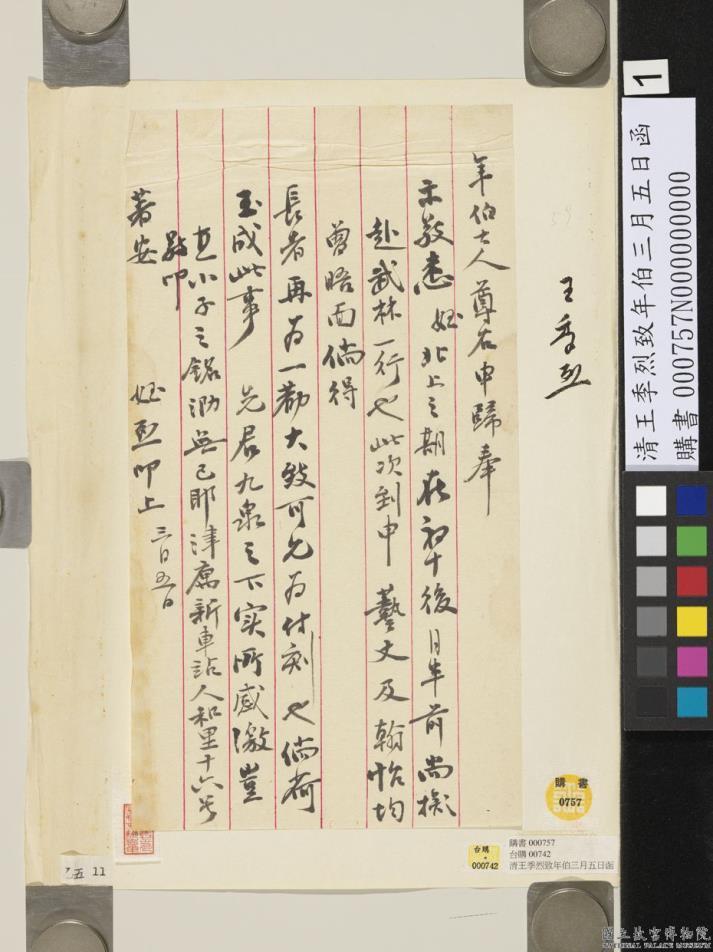 年伯大人尊右申歸奉
示敬悉姪北上之期在初十後月半前尚擬
赴武林一行也此次到申藝文及翰怡均
曾晤面倘得
長者再為一勸大致可允為付刻也倘荷
玉成此事先君九泉之下实所感激豈
直小子之銘泐無已耶津寓新車站人和里十六号
敬叩
著安
姪烈叩上 三月五日
王季烈
1
清王季烈致年伯三月五日函
購書 000757N000000000
購書
0757
台購
000742
購書 000757
台購 00742
清王季烈致年伯三月五日函
五 11
國立故宮博物院
NATIONAL PALACE MUSEUM